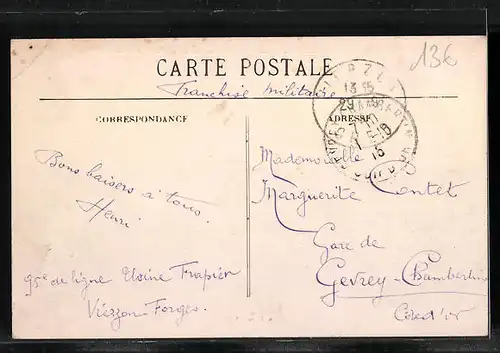 136
CARTE POSTALE
Franchise militaire
CORRESPONDANCE
ADRESSE
13 15
29
15
Bons baisers à tous
Henri
95e de ligne Usine Frapier
Vierzon-Forges.
Mademoiselle
Marguerite Contet
Gare de
Gevrey-Chambertin
Côte d'or